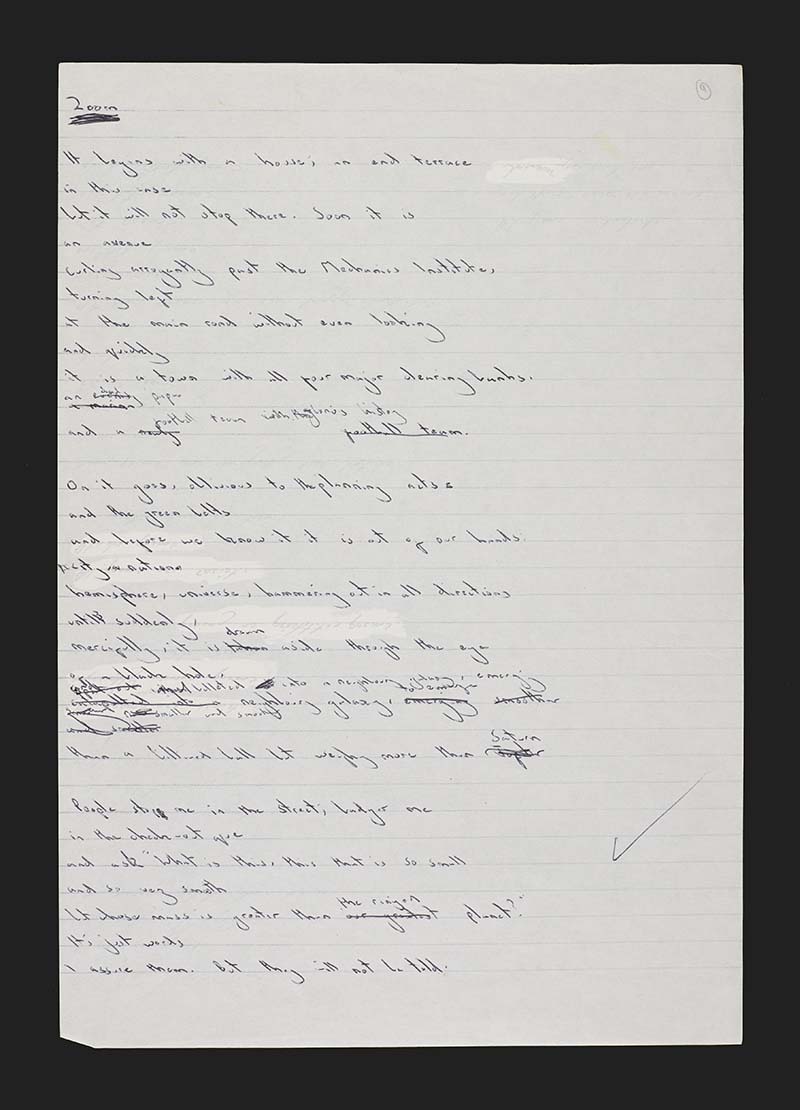 9
Zoom
It begins with a house, an end terrace
in this case
but it will not stop there. Soon it is
an avenue
curling arrogantly past the Mechanics Institute,
turning left
at the main road without even looking
and quickly
it is a town with all four major clearing banks.
an evening paper
and a football team
football team.
On it goes, oblivious to the planning acts
and the green belts
and before we know it it is out of our hands:
nation
hemisphere, universe, hammering out in all directions
until suddenly,
drawn
mercifully, it is aside through the eye
of a black hole,
into a neighbouring galaxy, emerging
a neighbouring galaxy, emerging smoother
smaller and smoother
Saturn
than a billiard ball but weighing more than
People stop me in the street, badger me
in the check-out queue
and ask "What is this, this that is so small
and so very smooth
the ringed
but whose mass is greater than planet?"
It's just words
I assure them. But they will not be told.